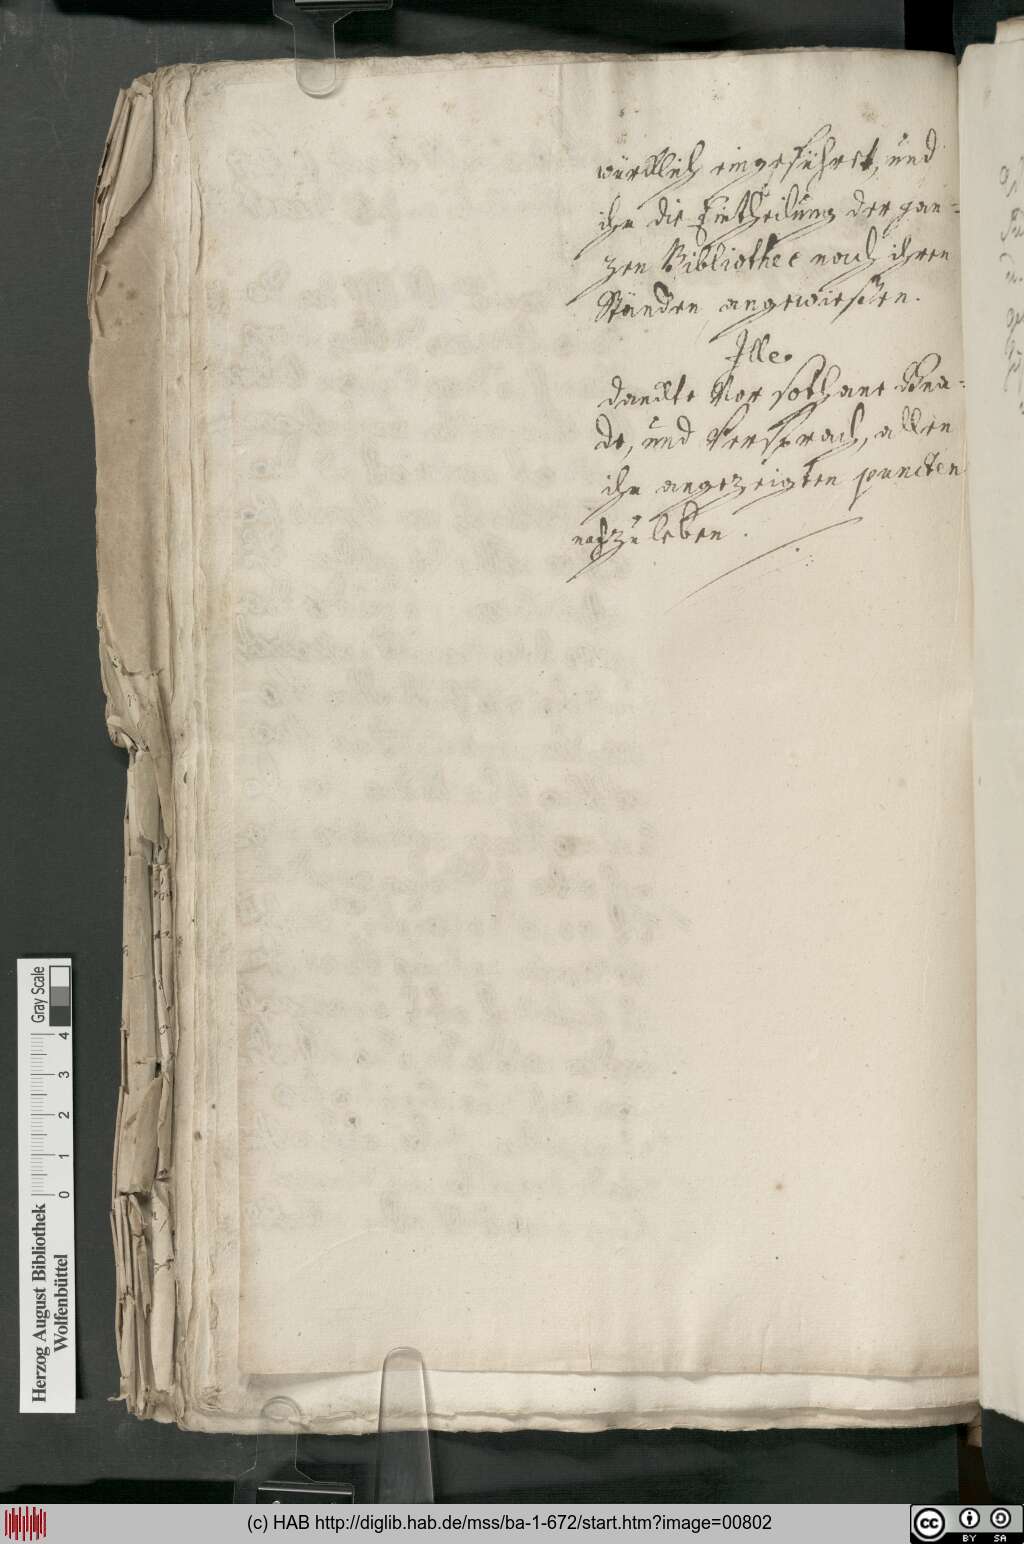 würcklich eingeführet, und
ihm die Eintheilung der gan-
zen Bibliothec nach ihren
Ständen angewießen.
Ille.
danckte vor sothane Gna-
de, und versprach, allen
ihm angezeigten puncten
nachzuleben.
Herzog August Bibliothek
Wolfenbüttel
0 1 2 3 4
Gray Scale
(c) HAB http://diglib.hab.de/mss/ba-1-672/start.htm?image=00802
cc BY SA